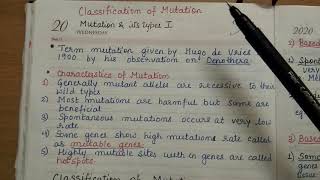 Classification of Mutation
20
Mutation & its types I
WEDNESDAY
• Term mutation given by Hugo de Vries
1900 by his observation on Oenothera
• Characteristics of Mutation
1) Generally mutant alleles are recessive to their
wild types
2) Most mutations are harmful but some are
beneficial
3) Spontaneous mutations occurs at very low
rate
4) Some genes show high mutations rate called
as mutable genes
5) Highly mutable sites with in genes are called
hotspots.
Classification of Mutation
2020
2) Based
1) Spont
1) Some